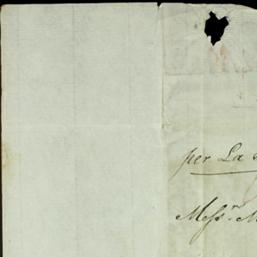 per La
Messrs. M